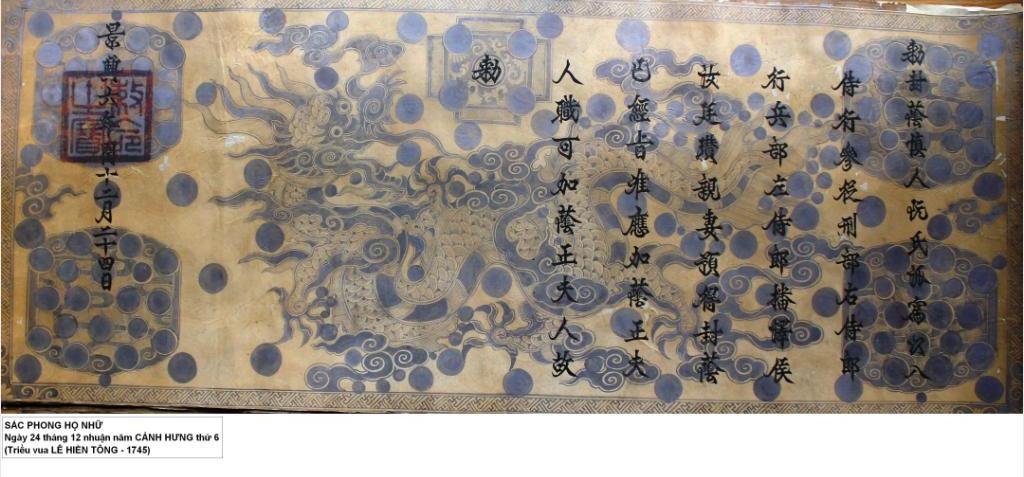 勅封蔭慎人阮氏派為入
侍行參從刑部右侍郎
行兵部左侍郎播澤侯
汝廷瓚親妻預得封蔭
已經旨准應加蔭正夫
人職可加蔭正夫人故
勅
景興六年閏十二月二十四日
敕命之寶
SẮC PHONG HỌ NHỮ
Ngày 24 tháng 12 nhuận năm CẢNH HƯNG thứ 6
(Triều vua LÊ HIỂN TÔNG - 1745)